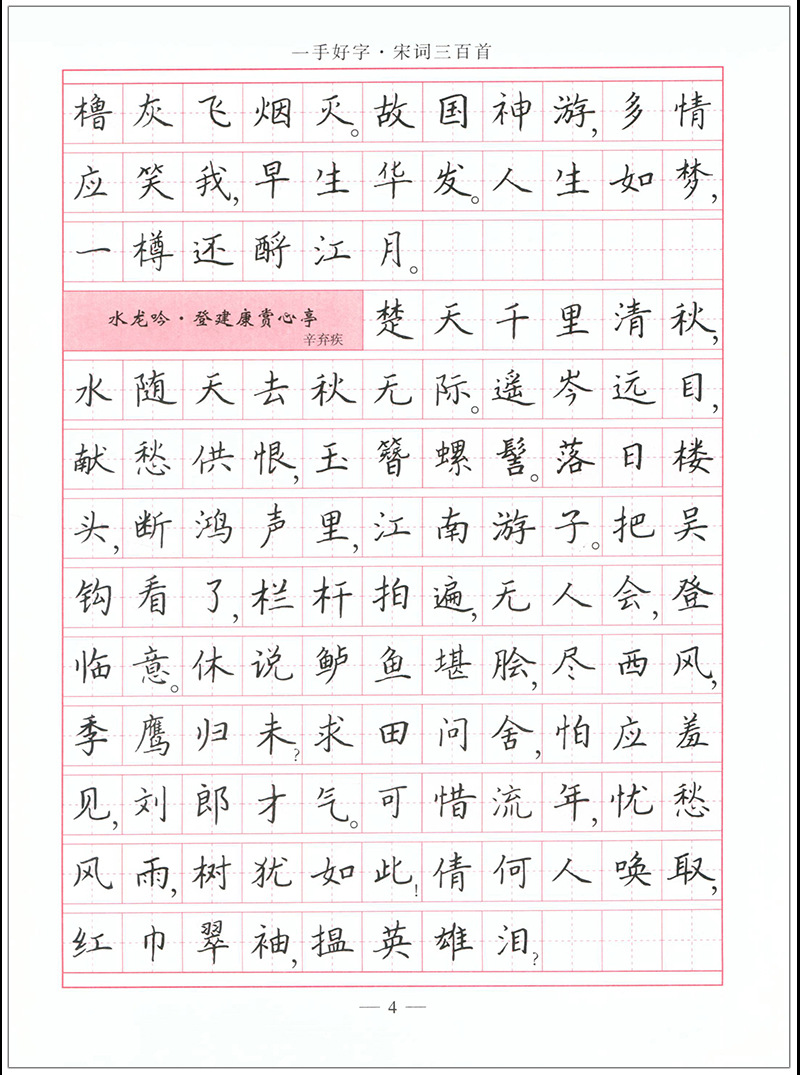 一手好字·宋词三百首
橹灰飞烟灭。故国神游,多情
应笑我,早生华发。人生如梦,
一樽还酹江月。
水龙吟·登建康赏心亭
辛弃疾
楚天千里清秋,
水随天去秋无际。遥岑远目,
献愁供恨,玉簪螺髻。落日楼
头,断鸿声里,江南游子。把吴
钩看了,栏杆拍遍,无人会,登
临意。休说鲈鱼堪脍,尽西风,
季鹰归未?求田问舍,怕应羞
见,刘郎才气。可惜流年,忧愁
风雨,树犹如此!倩何人唤取,
红巾翠袖,揾英雄泪?
— 4 —